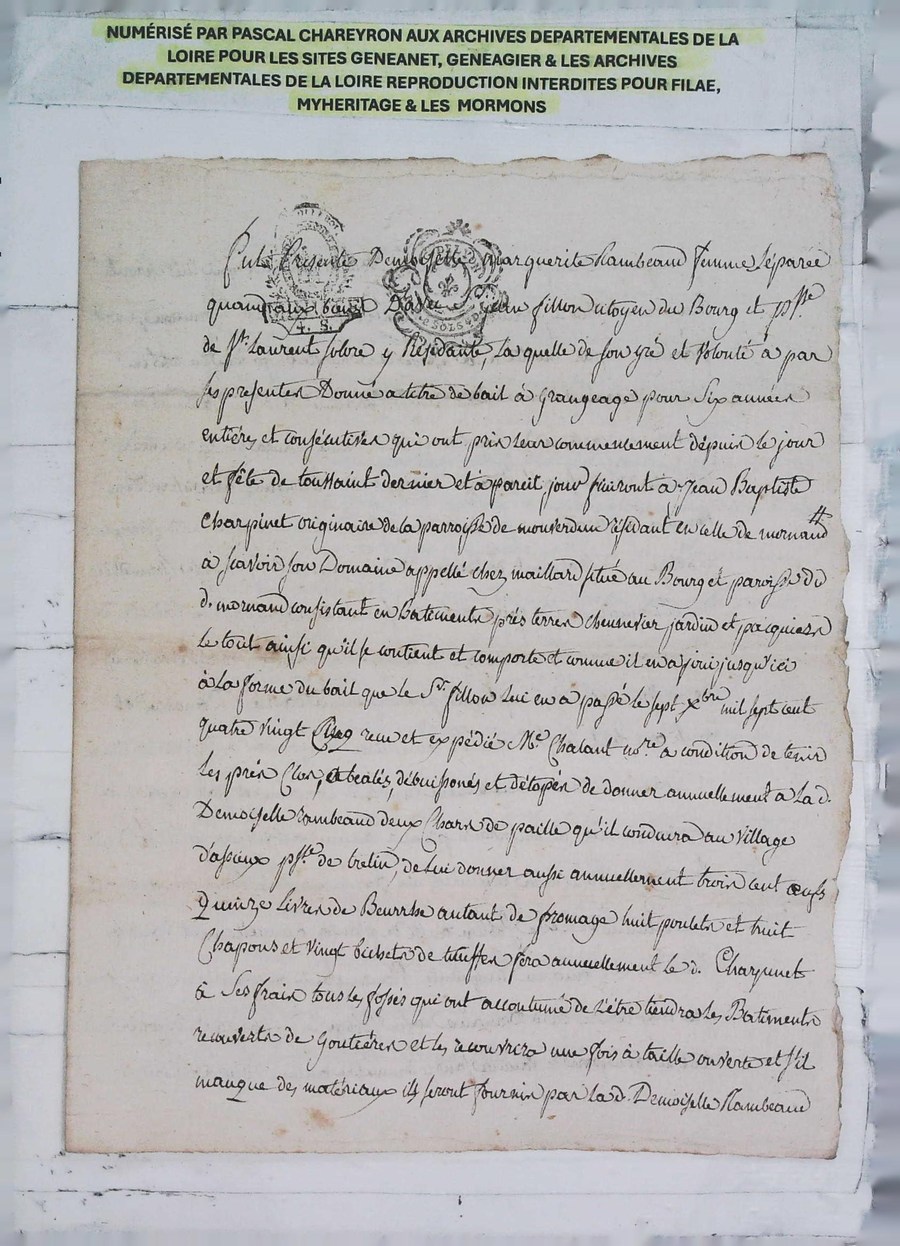 NUMÉRISÉ PAR PASCAL CHAREYRON AUX ARCHIVES DEPARTEMENTALES DE LA
LOIRE POUR LES SITES GENEANET, GENEAGIER & LES ARCHIVES
DEPARTEMENTALES DE LA LOIRE REPRODUCTION INTERDITES POUR FILAE,
MYHERITAGE & LES MORMONS
Presente Demoiselle Marguerite Rambeaud femme séparée
quand aux biens Sr. Jean fillon citoyen du Bourg et psse.
de St. Laurent solore y Résidante, La quelle de son gré et volonté a par
ses presentes Donné a titre de bail à grangeage pour Six années
entières et consécutives qui ont pris leur commencement dépuis le jour
et fête de toussaint dernier et à pareil jour finiront à Jean Baptiste
Charpinet originaire de la parroisse de mouverdun résidant en celle de mornand
à scavoir son Domaine appellé chez maillard situé au Bourg et paroisse du
d. mornand consistant en Batiments près terres chennevier jardin et pacquiers
le tout ainsi qu'il se contient et comporte et comme il en a joui jusqu'ici
à la forme du bail que le Sr. fillon Lui en a passé le sept Xbre mil sept cent
quatre vingt Cinq recu et expédié Me. Chalant nore a condition de tenir
Les prés Clos, débuissonés et détopés de donner annuellement a La d.
Demoiselle rambeaud deux Chars de paille qu'il conduira au village
d'assieux psse. de trelin, de Lui donner aussi annuellement trois cent œufs
Quinze Livres de Beurrhe autant de fromage huit poulets et huit
Chapons et vingt bichets de truffes fera annuellement le d. Charpinet
à Ses frais tous les fossés qui ont accoutumé de L'être tiendra les Batiments
recouverts de goutières et les recouvrira une fois à taille ouverte et s'il
manque des matériaux ils seront fournis par La d. Demoiselle Rambeaud